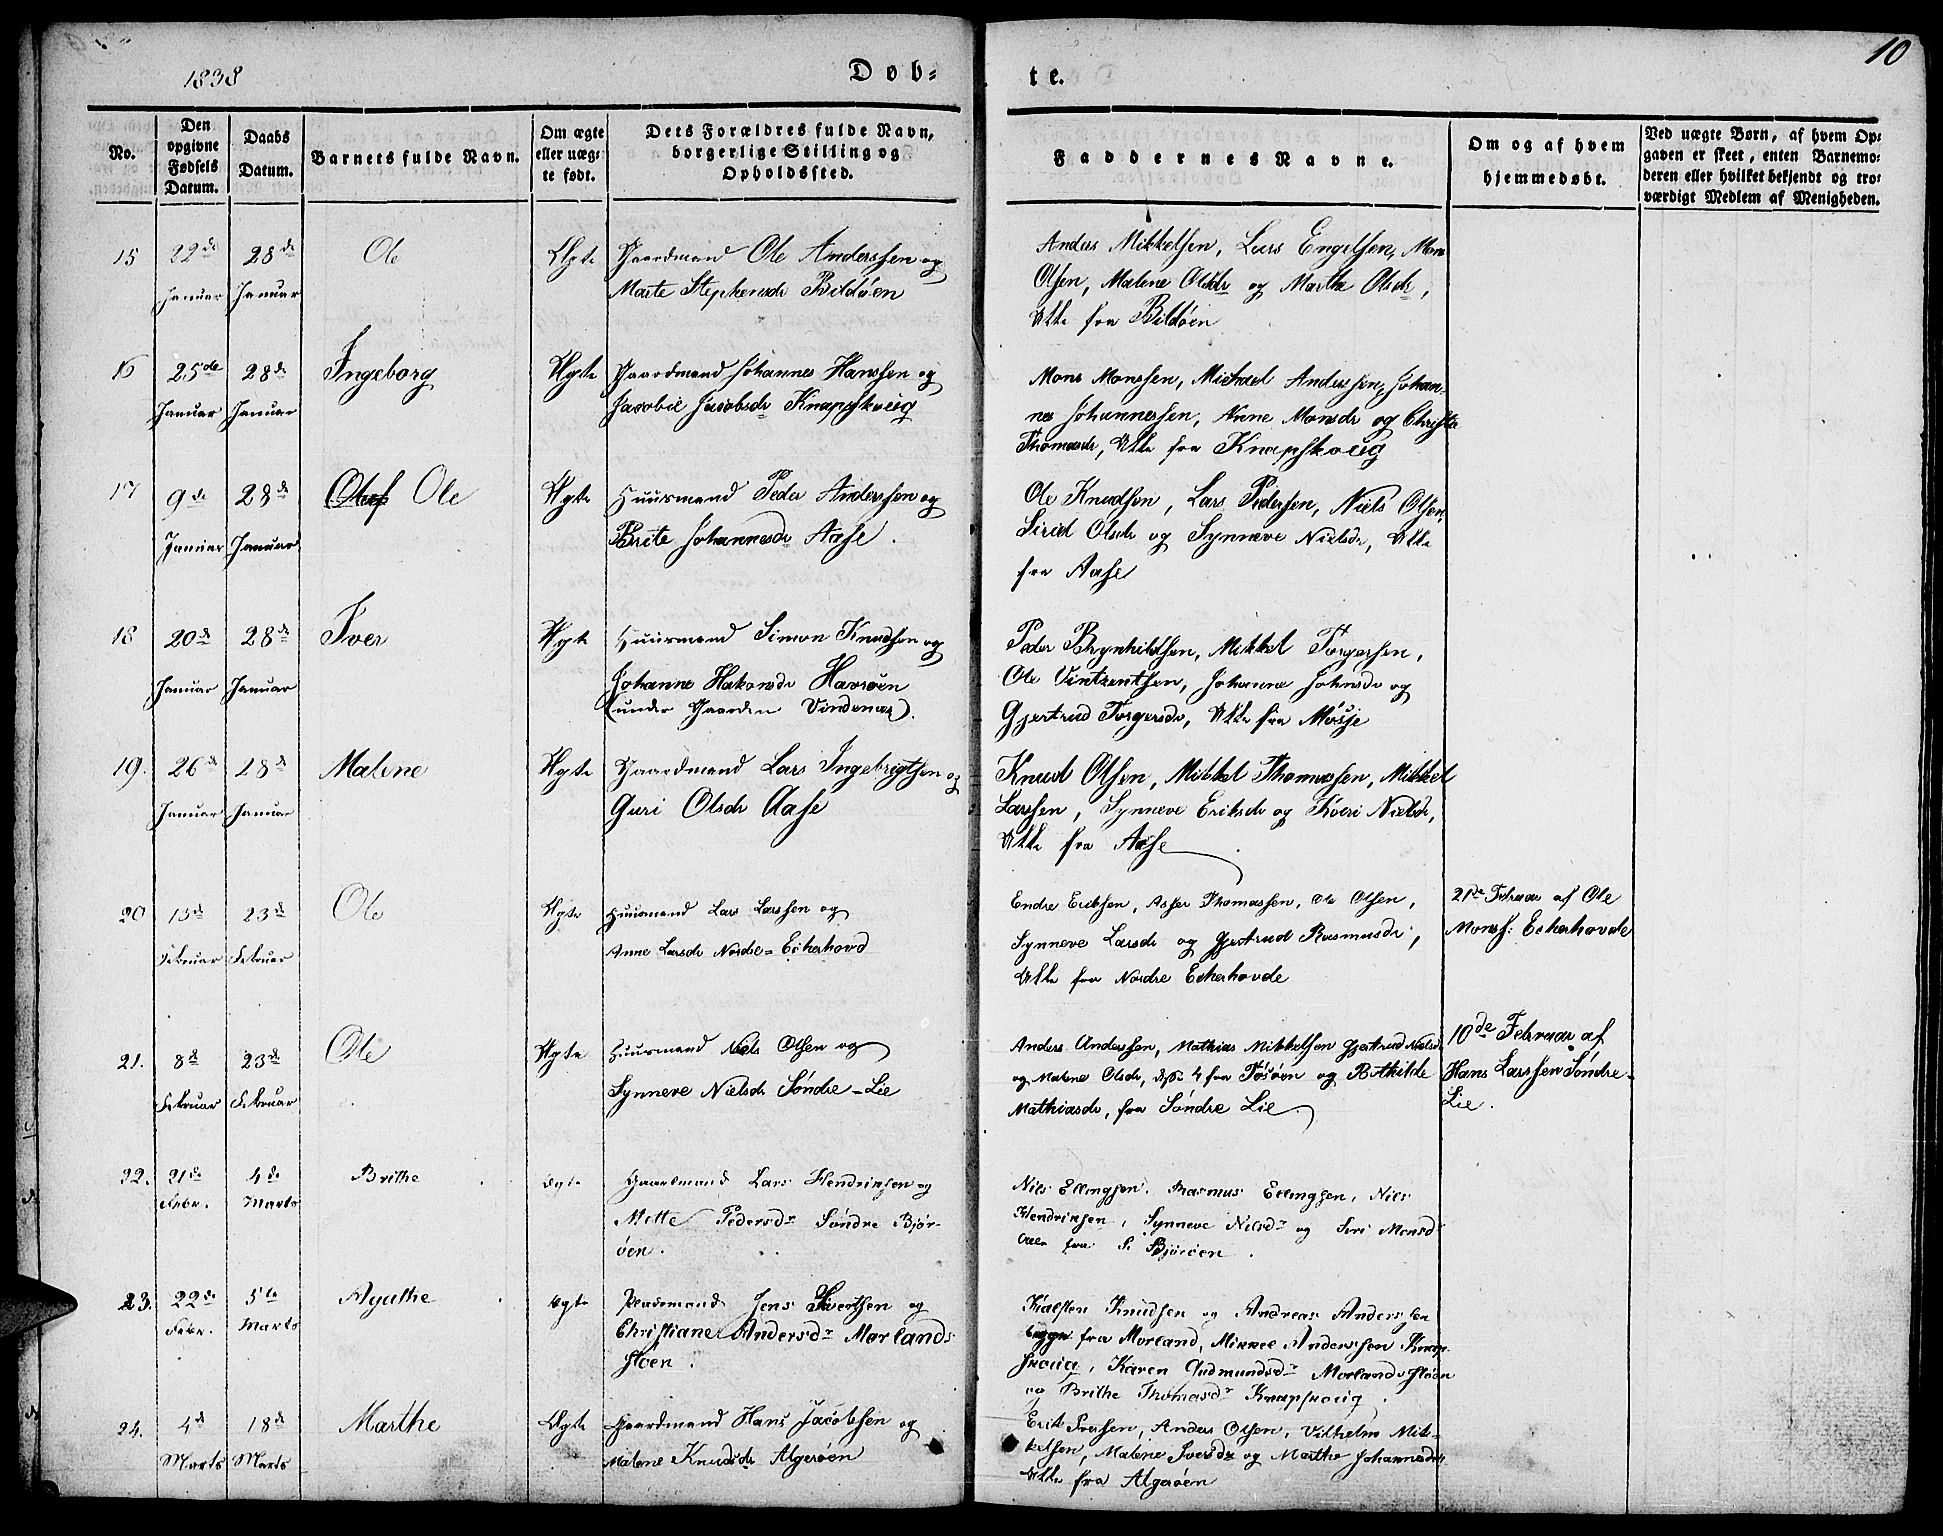 10
1838
Døb-
te.
No.
Den opgivne Fødsels Datum.
Daabs Datum.
Barnets fulde Navn.
Om ægte eller uægte født.
Dets Forældres fulde Navn, borgerlige Stilling og Opholdssted.
Faddernes Navne.
Om og af hvem hjemmedøbt.
Ved uægte Børn, af hvem Opgaven er skeet, enten Barnemoderen eller hvilket bekjendt og troværdigt Medlem af Menigheden.
15 22de Januar 28de Januar Ole Ægte
Gaardmand Ole Anderssen og
Marte Stephensdr Bildøen
Anders Mikkelsen, Lars Engelsen, Mons
Olsen, Malene Olsdr og Marthe Olsdr,
Alle fra Bildøen
16 25de Januar 28de Januar Ingeborg Ægte
Gaardmand Johannes Hanssen og
Jacobie Jacobsdr Knapskoug
Mons Monssen, Michael Anderssen, Johan-
nes Johannessen, Anne Monsdr og Christi
Thomasdr, Alle fra Knapskoug
17 9de Januar 28de Januar Ole Ægte
Huusmand Peder Anderssen og
Brite Johannesdr Aase.
Ole Knudsen, Lars Pedersen, Niels Olsen,
Sirid Olsdr og Synneve Nielsdr, Alle
fra Aase
18 20de Januar 28de Januar Iver Ægte
Huusmand Simon Knudsen og
Johanne Hakonsdr Havrøen
(under Gaarden Vindenæs).
Peder Brynhildsen, Mikkel Torgersen,
Ole Vintzentsen, Johanne Johnsdr og
Gjertrud Torgersdr, Alle fra Møsje
19. 26de Januar 28de Januar Malene Ægte
Gaardmand Lars Ingebrigtsen og
Guri Olsdr Aase
Knud Olsen, Mikkel Thomassen, Mikkel
Larssen, Synneve Eriksdr og Nielsdr,
Alle fra Aase
20 13de Februar 23de Februar Ole Ægte
Huusmand Lars Larssen og
Anne Larsdr Nordre-Eckerhovd
Endre Eriksen, Asser Thomassen, Ole Olsen,
Synneve Larsdr og Gjertrud Rasmusdr,
Alle fra Nordre Eckerhovde
21de Februar af Ole
Monss: Eckerhovde
21. 8de Februar 23de Februar Ole Ægte
Huusmand Niels Olsen og
Synneve Nielsdr Søndre-Lie
Anders Anderssen, Mathias Mikkelsen Gjertrud Nielsdr
og Malene Olsdr, disse 4 fra Tøsøen og Bothilde
Mathiasdr, fra Søndre Lie.
10de Februar af
Hans Larssen Søndre-
Lie.
22. 21de Febr. 4de Marts Brithe Ægte
Gaardmand Lars Hendriksen og
Mette Pedersdr Søndre Bjør-
øen.
Nils Ellingsen, Rasmus Ellingsen, Nils
Hendriksen, Synneve Nilsdr og Siri Monsdr
Alle fra S: Bjørøen.
23. 22de Febr. 5te Marts Agathe Ægte
Jens Sivertsen og
Christiane Andersdr Morlands
støen.
Knudsen og Andreas Anderssen
begge fra Morland, Mikkel Anderssen Knap-
skoug, Karen Gudmundsdr Morlandsstøen
og Brithe Thomasdr Knapskoug.
24. 4de Marts 18de Marts Marthe Ægte
Gaardmand Hans Jacobsen og
Malene Knudsdr Algerøen
Erik Iversen, Anders Olsen, Vilhelm Mik-
kelsen, Malene Iversdr og Marthe Johannesdr
Alle fra Algerøen